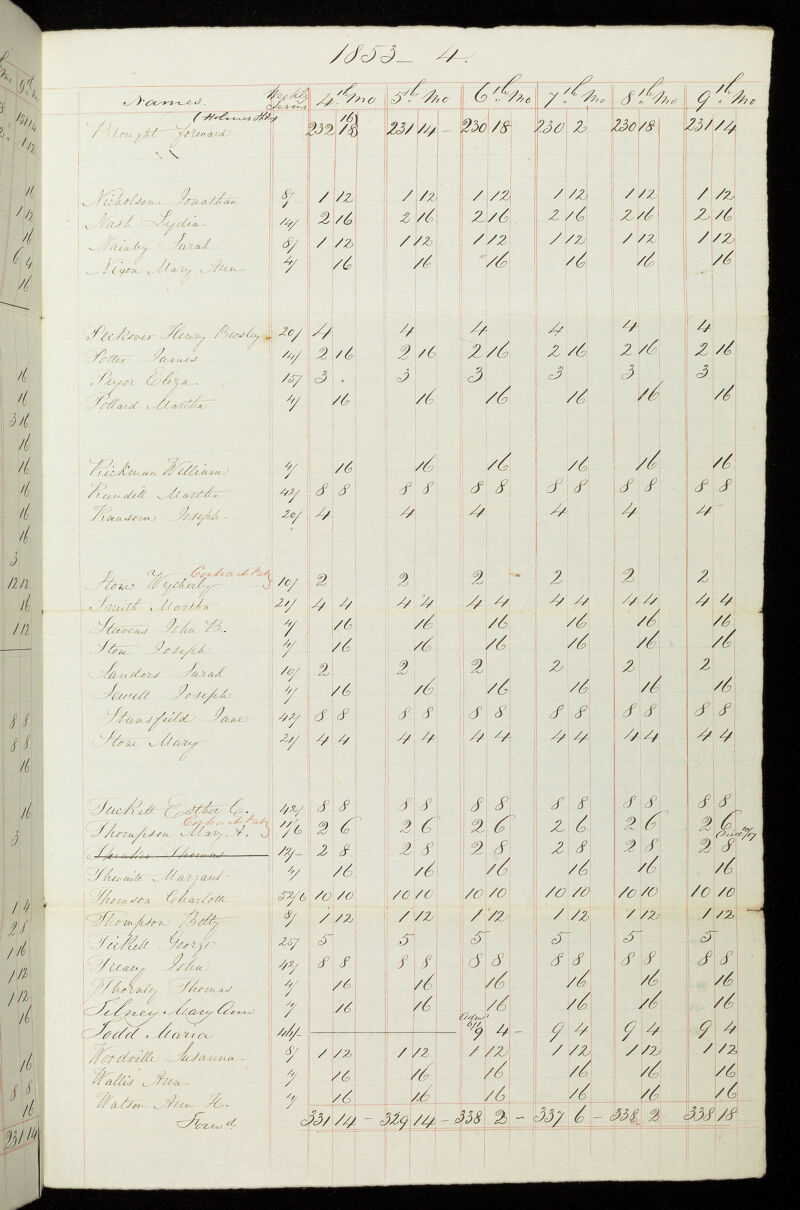 1853 - 4.
Names. Weekly Terms 4th Mo 5th Mo 6th Mo 7th Mo 8th Mo 9th Mo
Brought forward 232 18 231 14 - 230 18 230 2 230 18 231 14
Nicholson Jonathan 8/ 1 12 1 12 1 12 1 12 1 12 1 12
Nash Lydia 14/ 2 16 2 16 2 16 2 16 2 16 2 16
Nainby Sarah 8/ 1 12 1 12 1 12 1 12 1 12 1 12
Nixon Mary Ann 4/ 16 16 16 16 16 16
Peckover Henry Beesley 20/ 4 4 4 4 4 4
Potter James 14/ 2 16 2 16 2 16 2 16 2 16 2 16
Pryor Eliza 15/ 3 3 3 3 3 3
Pollard Martha 4/ 16 16 16 16 16 16
Rickman William 4/ 16 16 16 16 16 16
Rundell Martha 42/ 8 8 8 8 8 8 8 8 8 8 8 8
Ransom Joseph 20/ 4 4 4 4 4 4
Stone Wycherly 10/ 2 2 2 2 2 2
Smith Martha 21/ 4 4 4 4 4 4 4 4 4 4 4 4
Stevens John B. 4/ 16 16 16 16 16 16
Stone Joseph 4/ 16 16 16 16 16 16
Sanders Sarah 10/ 2 2 2 2 2 2
Sewell Joseph 4/ 16 16 16 16 16 16
Stansfield Jane 42/ 8 8 8 8 8 8 8 8 8 8 8 8
Stone Mary 21/ 4 4 4 4 4 4 4 4 4 4 4 4
Tuckett Esther C. 42/ 8 8 8 8 8 8 8 8 8 8 8 8
Thompson Mary A. 11/6 2 6 2 6 2 6 2 6 2 6 2 6
Thomas 12/- 2 8 2 8 2 8 2 8 2 8 2 8
Thwaite Margaret 4/ 16 16 16 16 16 16
Thomson Charlotte 52/6 10 10 10 10 10 10 10 10 10 10 10 10
Thompson Betty 8/ 1 12 1 12 1 12 1 12 1 12 1 12
Tickell George 25/ 5 5 5 5 5 5
Treacy John 42/ 8 8 8 8 8 8 8 8 8 8 8 8
Thornley Thomas 4/ 16 16 16 16 16 16
Tilney Mary Ann 4/ 16 16 16 16 16 16
Todd Maria 46/- 9 4 - 9 4 9 4 9 4
Woodville Susanna 8/ 1 12 1 12 1 12 1 12 1 12 1 12
Wallis Ann 4/ 16 16 16 16 16 16
Watson Ann H. 4/ 16 16 16 16 16 16
Forwd 331 14 - 329 14 - 338 2 - 337 6 - 338 2 338 18